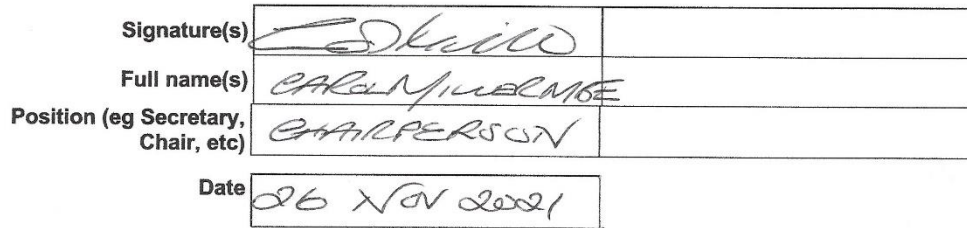 Signature(s)
Full name(s) CAROL MILLER MBE
Position (eg Secretary, CHAIRPERSON
Chair, etc)
Date 26 NOV 2021